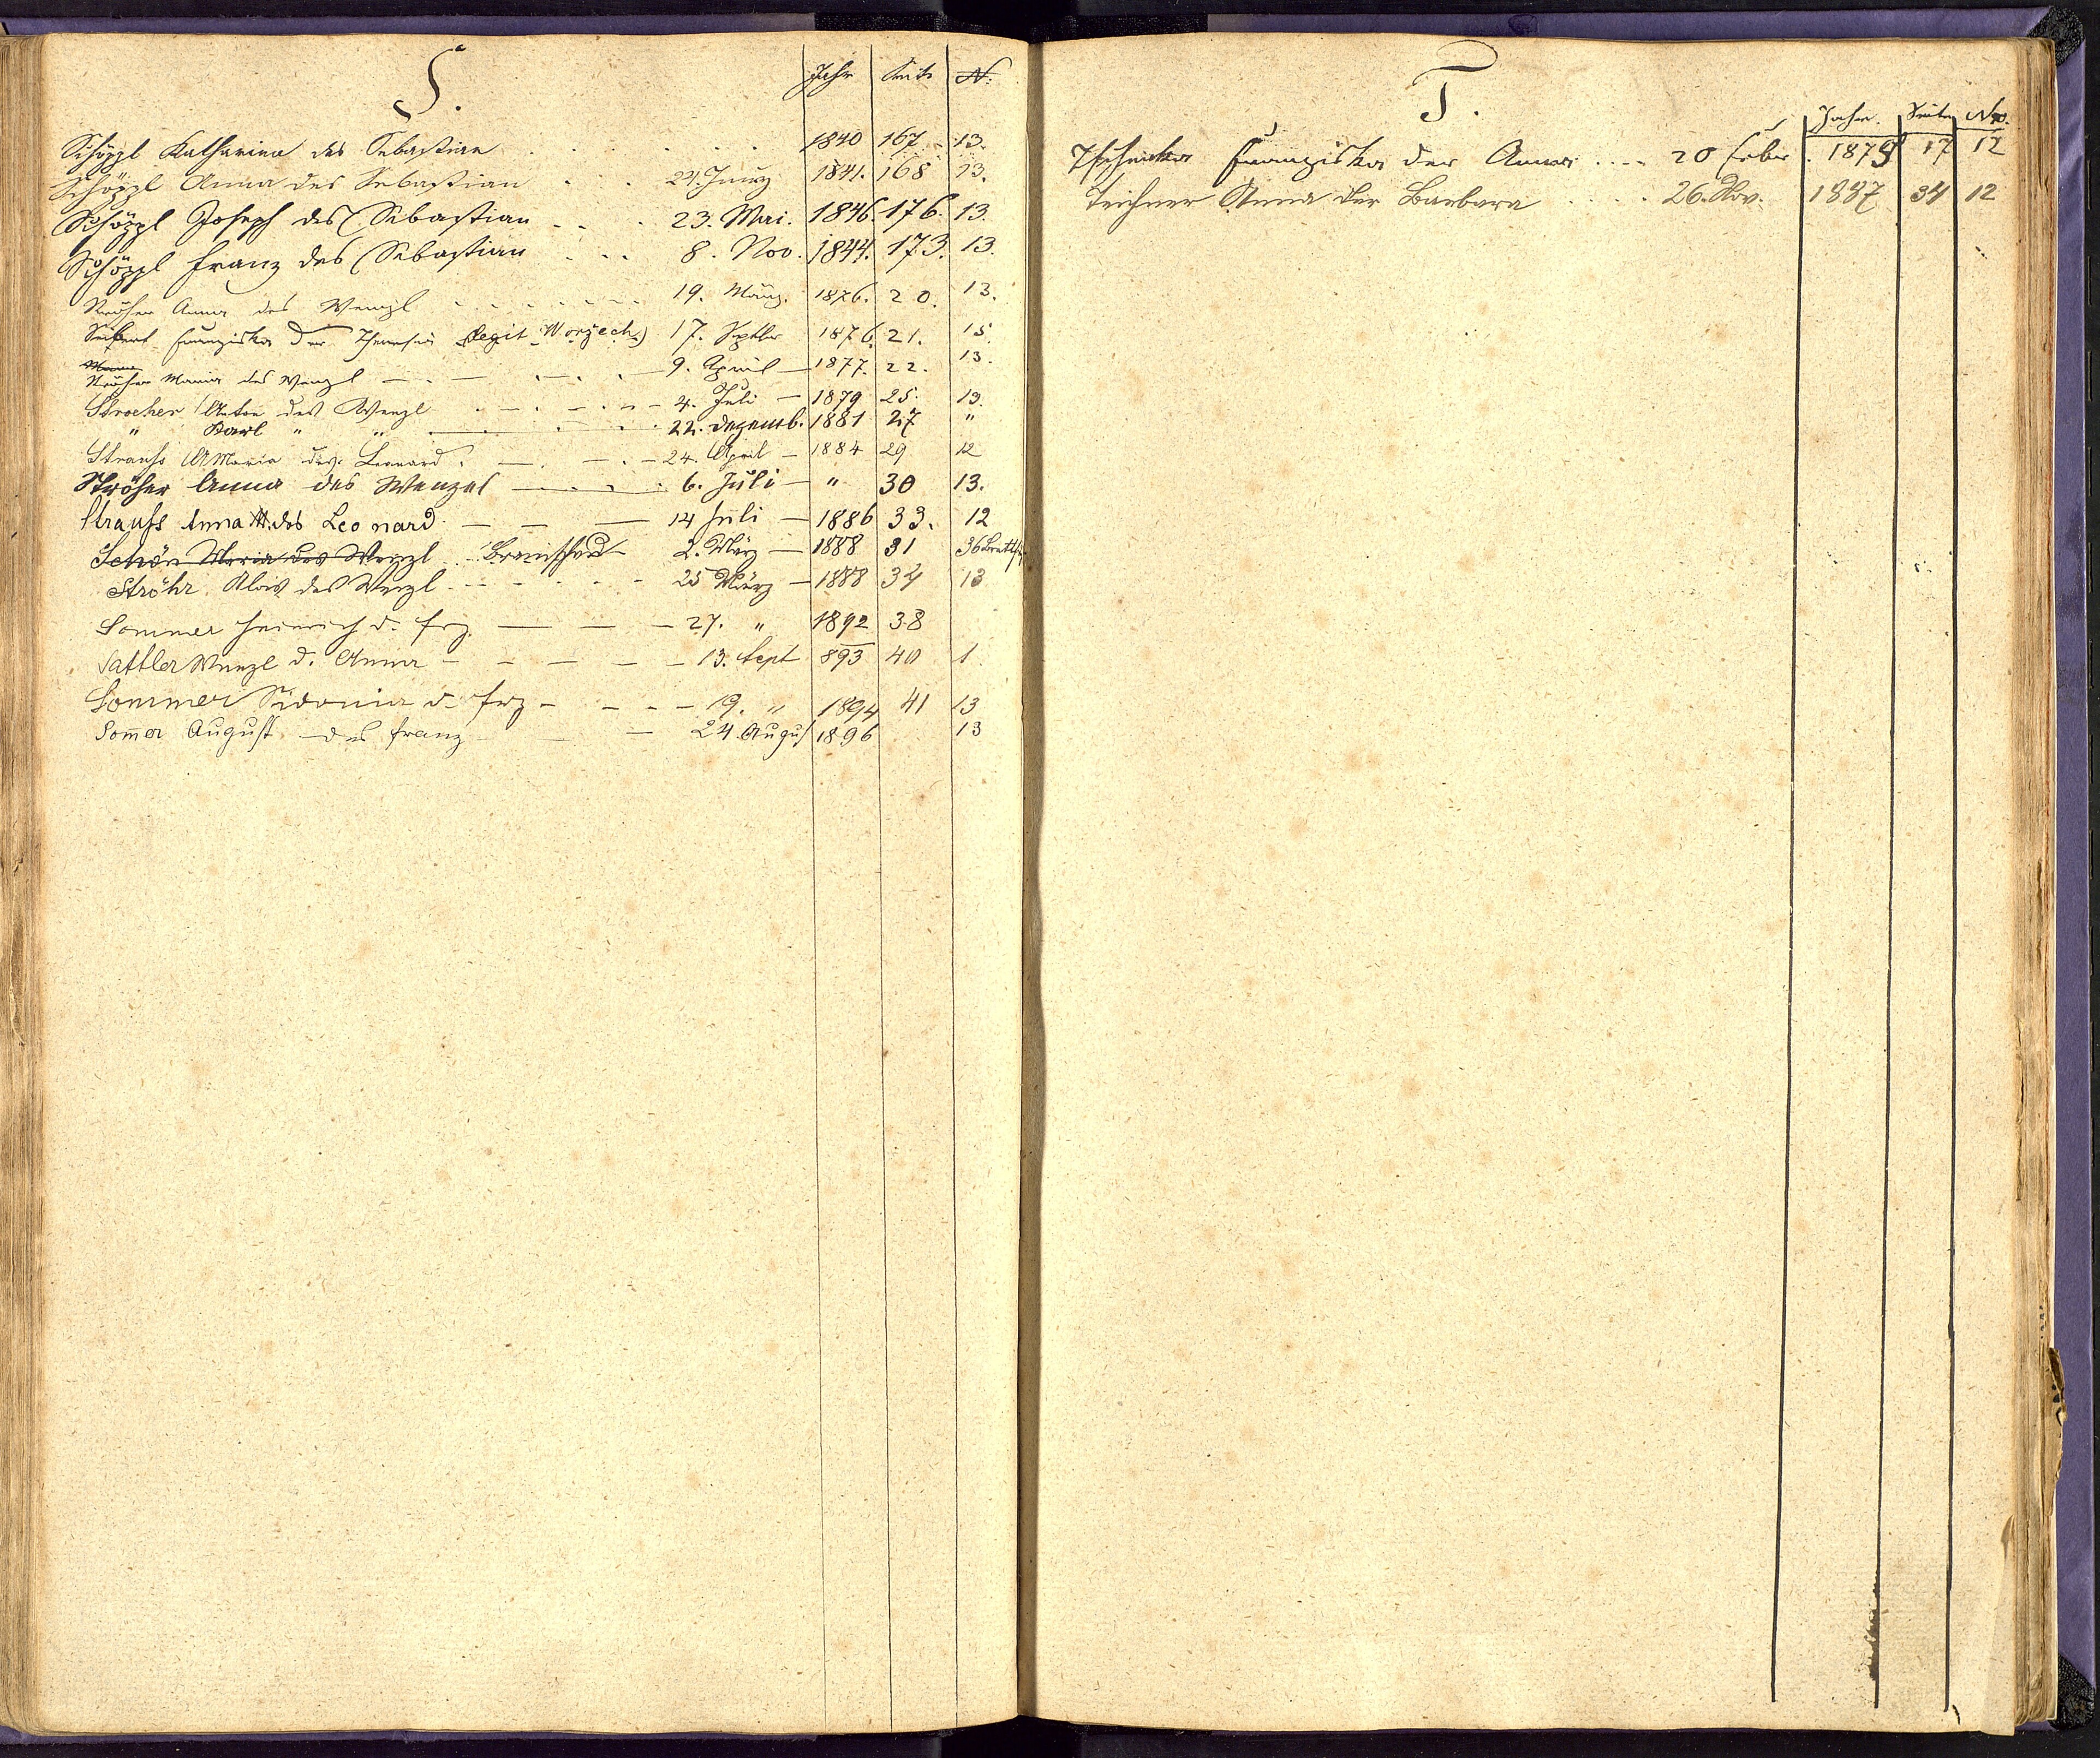 S.
Jahr Seite N:
Schöppl Katharina des Sebastian . . . . . 1840 167. 13.
Schöppl Anna des Sebastian . . . 24. 1841. 168 13.
Schöppl Joseph des Sebastian . . . 23. Mai. 1846. 176. 13.
Schöppl Franz des Sebastian . . . 8. Nov. 1844. 173. 13.
Ströher Anna des Wenzl . . . . . . 19. März. 1876. 20. 13.
Seifert Franziska der Theresia (legit. Worzech) 17. Septbr 1876. 21. 15.
Ströher Maria des Wenzl — . — . — . — 9. April — 1877. 22. 13.
Stroeher Anton des Wenzl . — . — . — 4. Juli — 1879 25. 13.
" Karl " " — . — . 22. Dezemb. 1881 27 "
Strauss A Maria des Leonard . — . — . — 24. April — 1884 29 12
Ströher Anna des Wenzel — . — . — . 6. Juli — " 30 13.
Strauss Anna M. des Leonard. — — — 14 Juli — 1886 33. 12
Schön Maria des Wenzl . . 2. März — 1888 31 36
Ströhr Alois des Wenzl . — . . . . 25 März — 1888 34 13
Sommer Heinrich d. Frz. — — — 27. " 1892 38
Sattler Wenzl d. Anna — — — — — 13. Sept 893 40 1
Sommer Sidonia d. Frz — — — — 19. " 1894 41 13
Som̄er August des Franz — — 24. August 1896 13
T.
Jahr. Seite Nro.
Franziska der Anna . . . . 20 Feber . 1879 17 12
Teichner Anna der Barbara . . . . 26. Nov. 1887 34 12